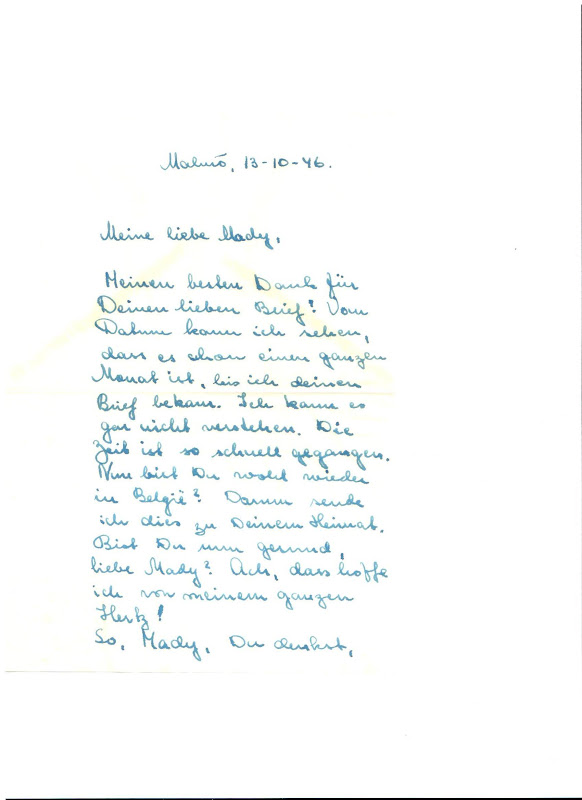 Malmö, 13-10-46.
Meine liebe Mady,
Meinen besten Dank für
Deinen lieben Brief! Vom
Datum kann ich sehen,
dass es schon einen ganzen
Monat ist, bis ich deinen
Brief bekam. Ich kann es
gar nicht verstehen. Die
Zeit ist so schnell gegangen.
Nun bist Du wohl wieder
in België? Darum sende
ich dies zu Deinem Heimat.
Bist Du nun gesund,
liebe Mady? Ach, dass hoffe
ich von meinem ganzen
Hertz!
So, Mady, Du denkst,